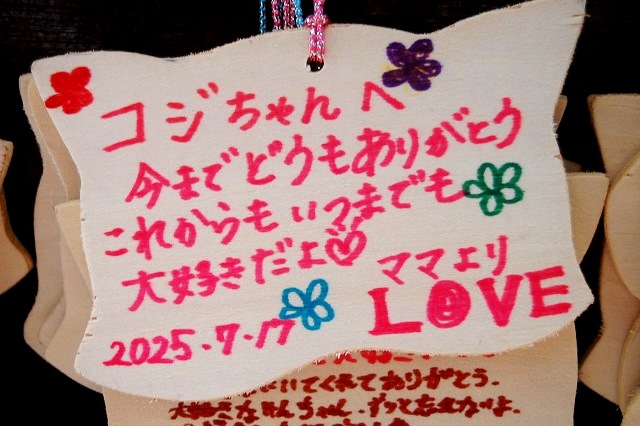 コジちゃんへ
今までどうもありがとう
これからもいつまでも
大好きだよ♡
ママより
LOVE
2025.7.17
いてくれてありがとう.
大好きな
ちゃん.ずっと忘れないよ.